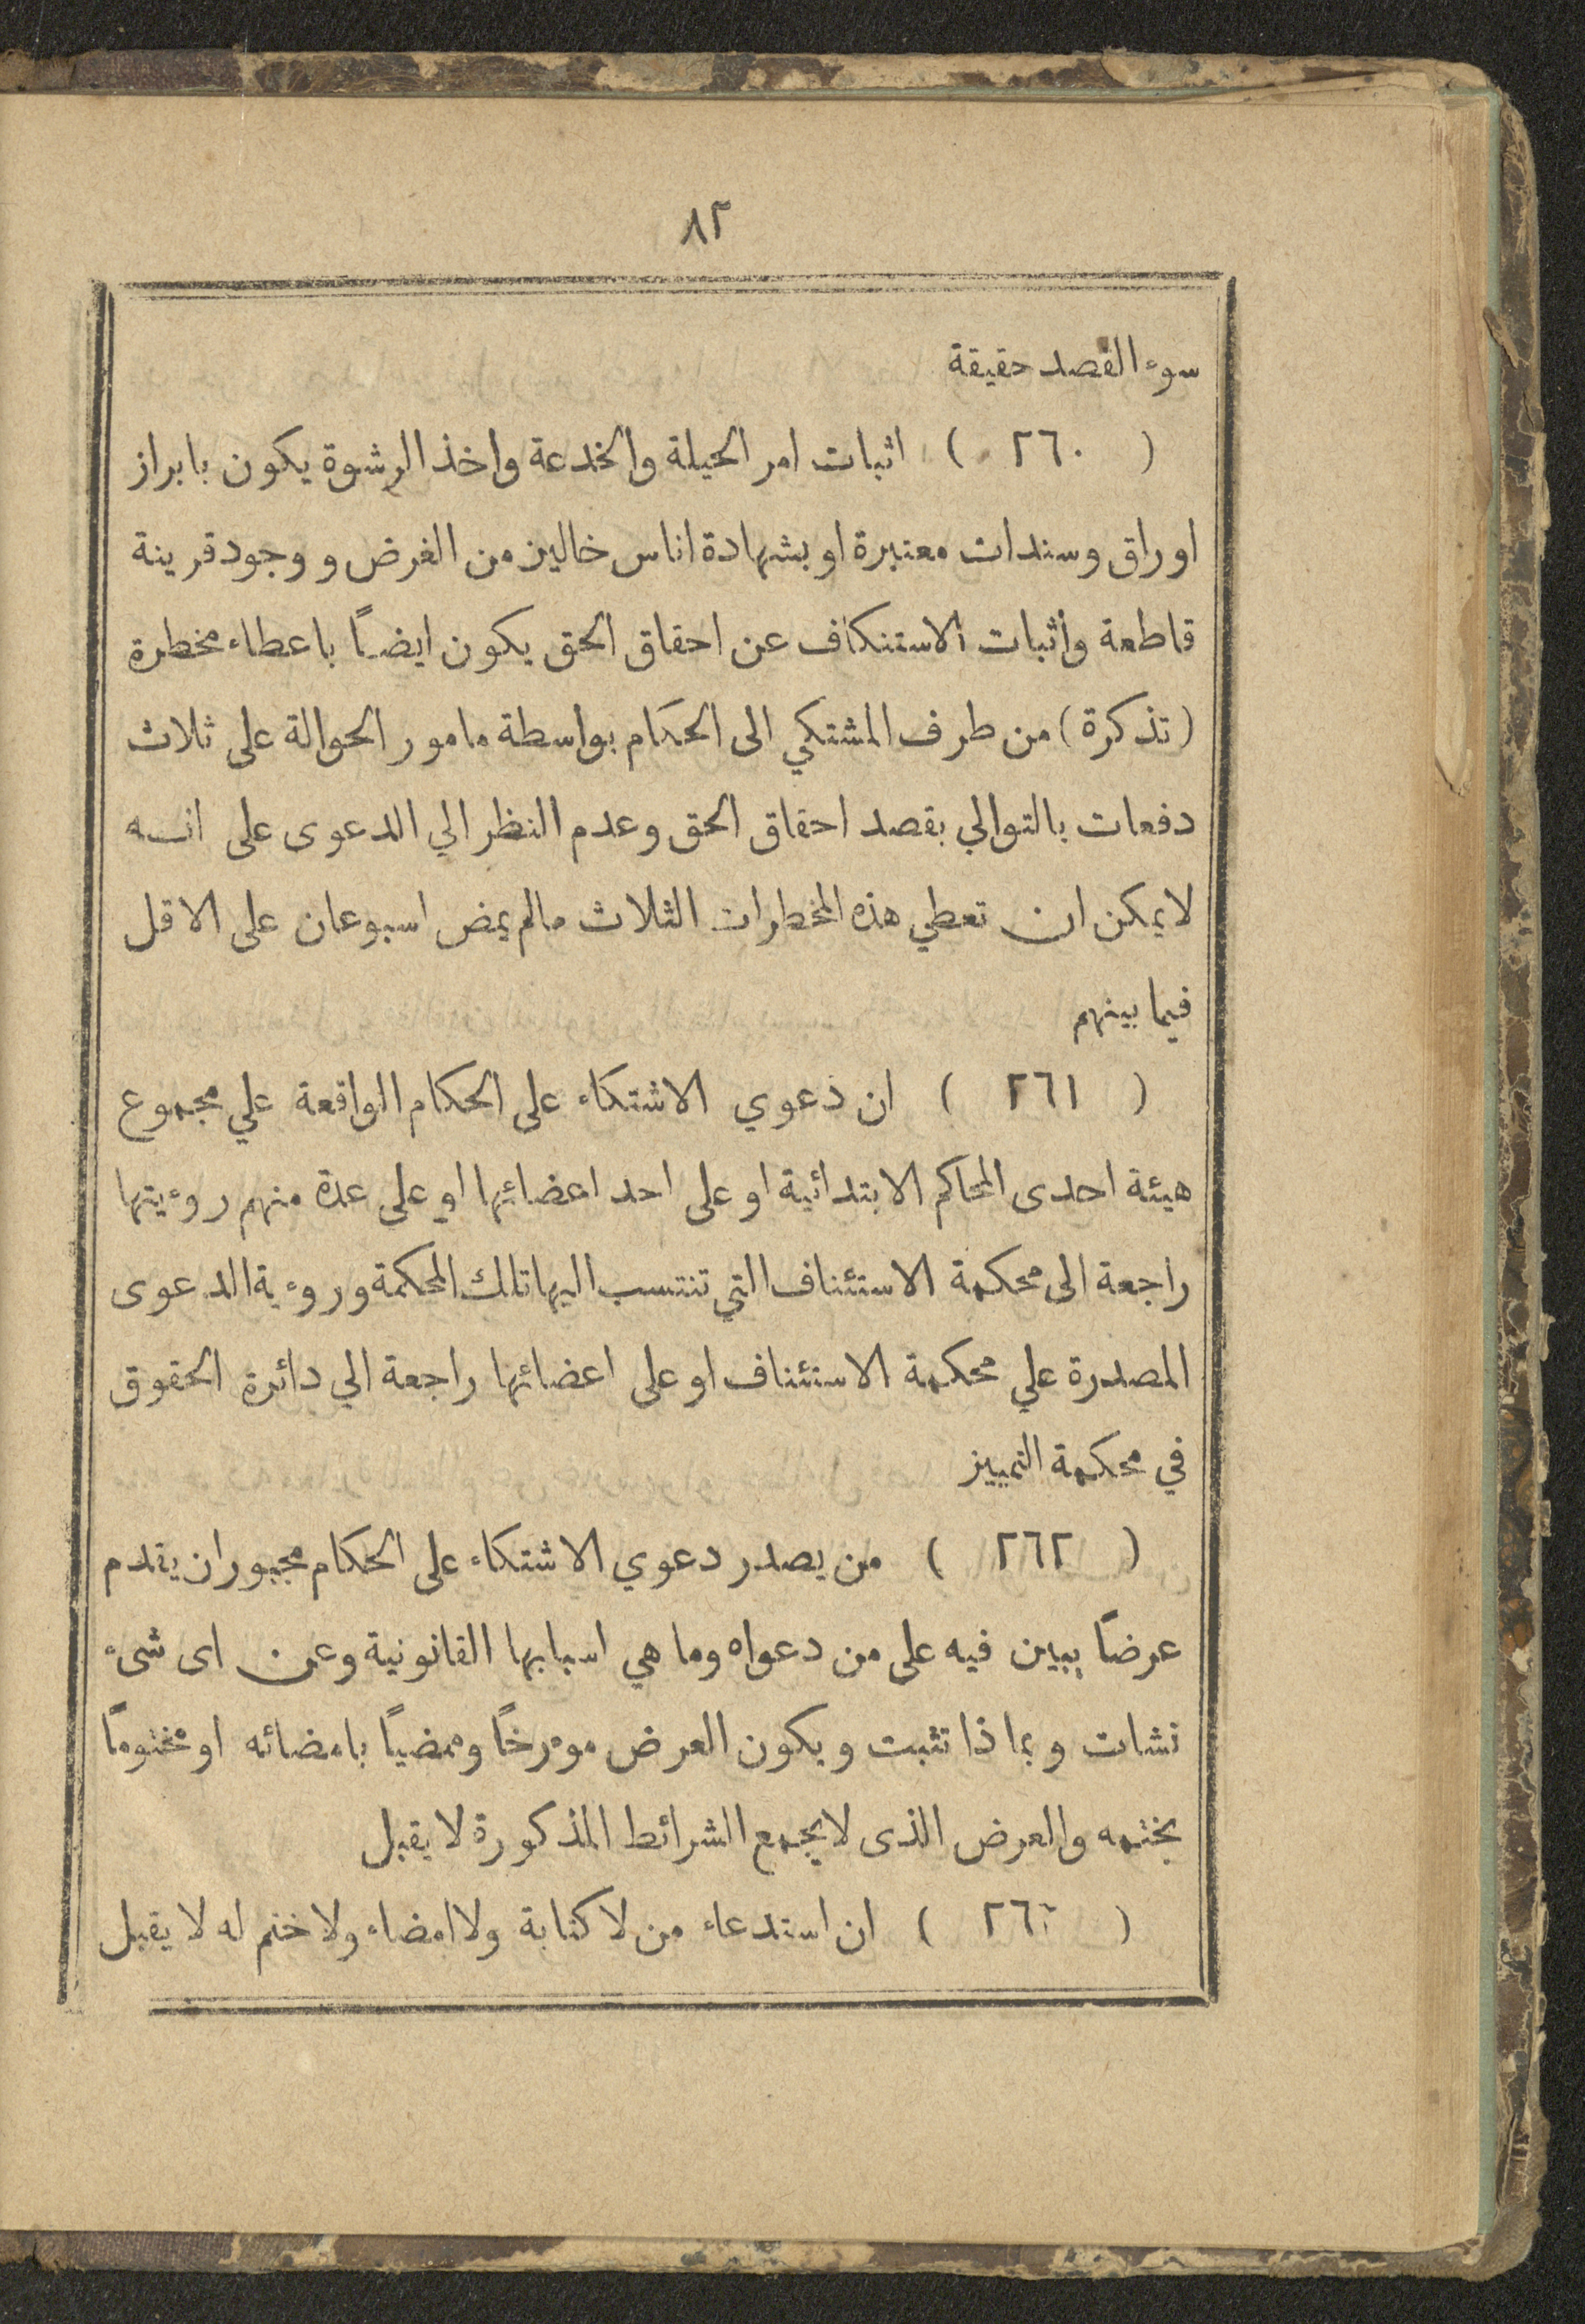 ٨٢
سوء القصد حقيقة
( ٢٦٠ ) اثبات امر الحيلة والخدعة واخذ الرشوة يكون بابراز
اوراق وسندات معتبرة او بشهادة اناس خالين من الغرض و وجود قرينة
قاطعة واثبات الاستنكاف عن احقاق الحق يكون ايضاً باعطاء مخطرة
(تذكرة) من طرف المشتكي الى الحكام بواسطة مامور الحوالة على ثلاث
دفعات بالتوالي بقصد احقاق الحق وعدم النظر الي الدعوى على انه
لا يمكن ان تعطي هذه المخطرات الثلاث مالم يمض اسبوعان على الاقل
فيما بينهم
( ٢٦١ ) ان دعوي الاشتكاء على الحكام الواقعة علي مجموع
هيئة احدى المحاكم الابتدائية او على احد اعضائها او على عدة منهم روءيتها
راجعة الى محكمة الاستئناف التي تنتسب اليها تلك المحكمة وروءية الدعوى
المصدرة علي محكمة الاستئناف او على اعضائها راجعة الي دائرة الحقوق
في محكمة التمييز
( ٢٦٢ ) من يصدر دعوي الاشتكاء على الحكام مجبور ان يقدم
عرضاً يبين فيه على من دعواه وما هي اسبابها القانونية وعن اى شىء
نشات وبماذا تثبت ويكون العرض موءرخاً وممضياً بامضائه او مختوماً
بختمه والعرض الذى لا يجمع الشرائط المذكورة لا يقبل
( ٢٦٣ ) ان استدعاء من لا كتابة ولا امضاء ولا ختم له لا يقبل